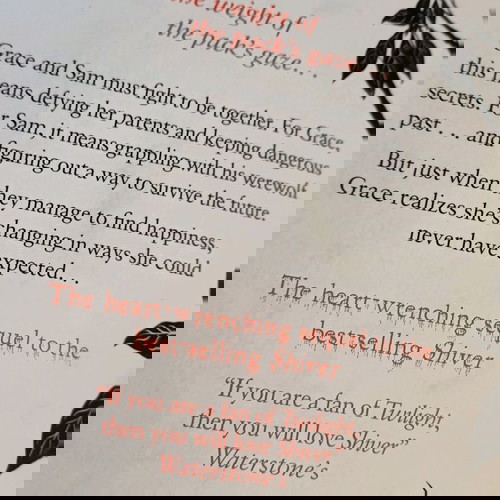 the weight of
the pack's gaze...
Grace and Sam must fight to be together. For Grace,
this means defying her parents and keeping dangerous
secrets. For Sam, it means grappling with his werewolf
past... and figuring out a way to survive the future.
But just when they manage to find happiness,
Grace realizes she's changing in ways she could
never have expected...
The heart-wrenching sequel to the
bestselling Shiver
"If you are a fan of Twilight,
then you will love Shiver"
Waterstone's